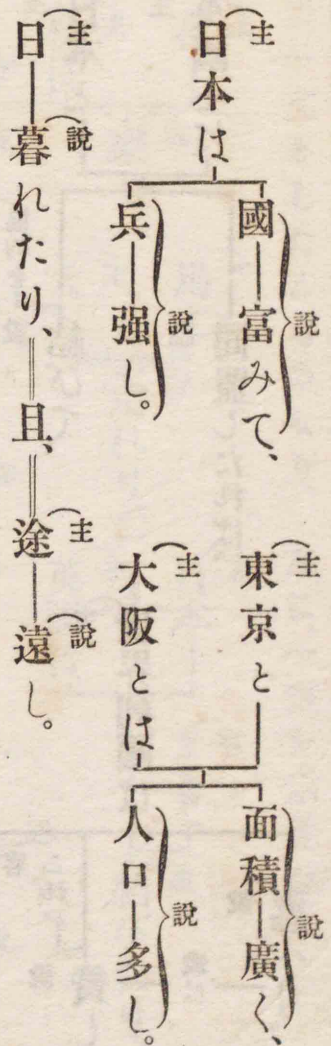 主 日本は
國―富みて、 說
兵―强し。 說
主 東京と
主 大阪とは
面積―廣く、 說
人口―多し。 說
主 日―說 暮れたり、═且、═主 途―說 遠し。